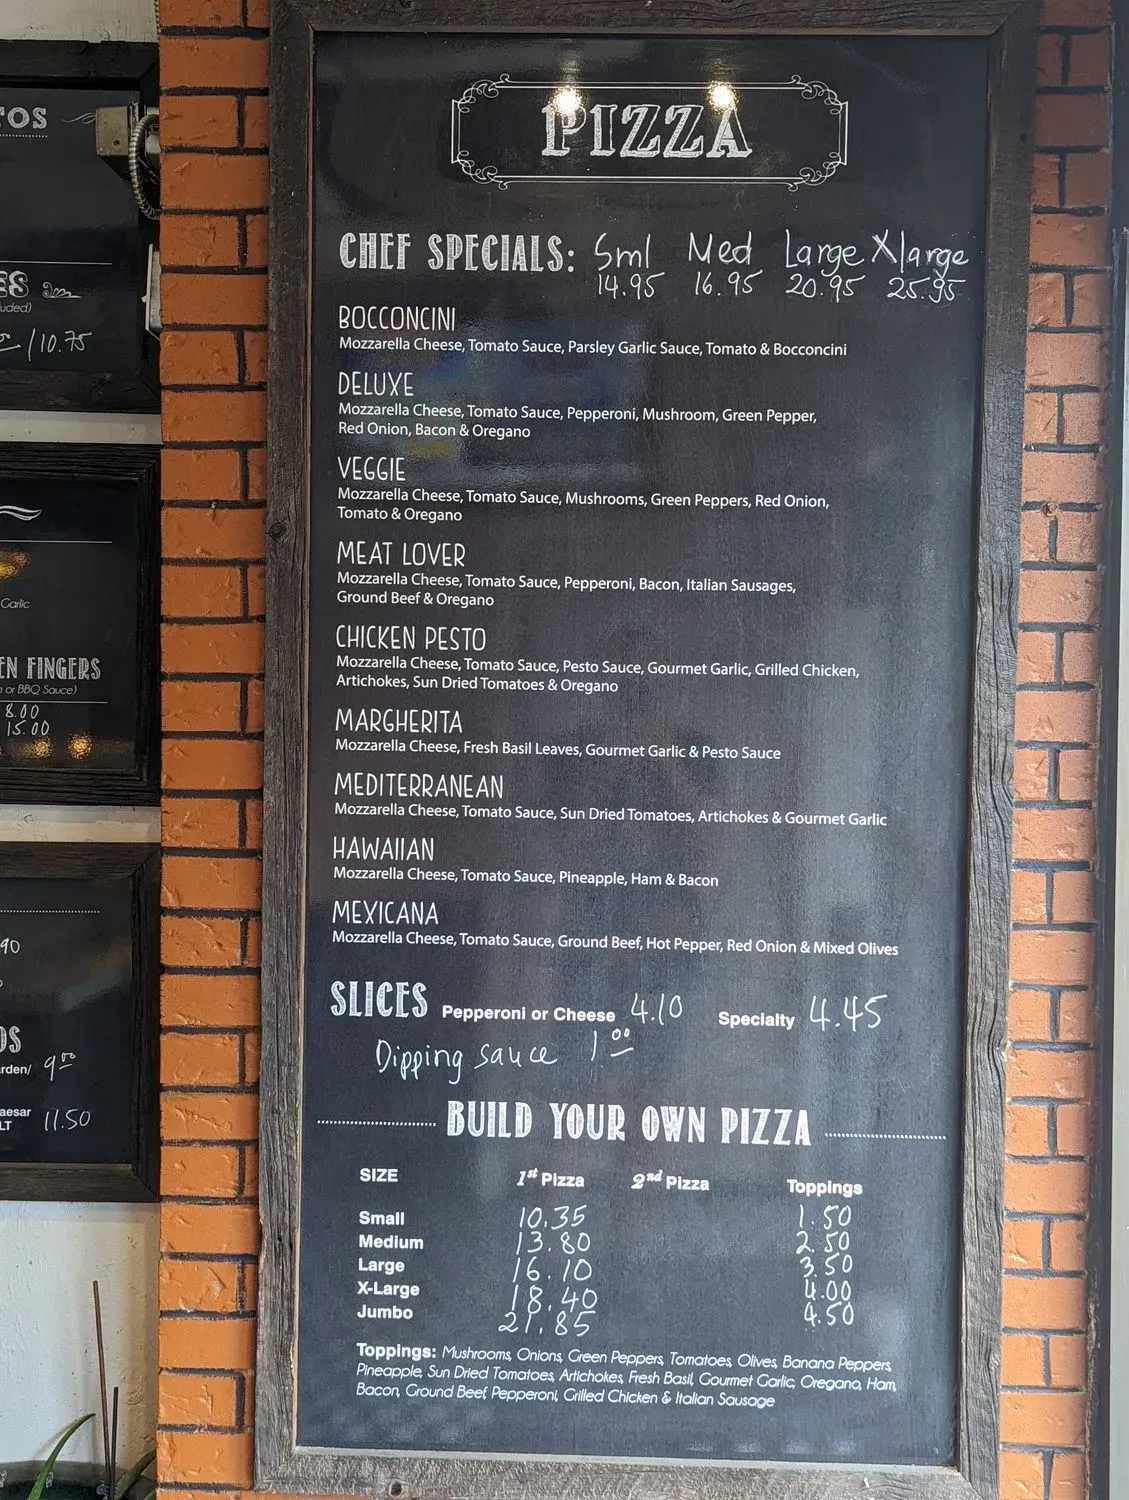 PIZZA
CHEF SPECIALS: Sml Med Large Xlarge
14.95 16.95 20.95 25.95
BOCCONCINI
Mozzarella Cheese, Tomato Sauce, Parsley Garlic Sauce, Tomato & Bocconcini
DELUXE
Mozzarella Cheese, Tomato Sauce, Pepperoni, Mushroom, Green Pepper,
Red Onion, Bacon & Oregano
VEGGIE
Mozzarella Cheese, Tomato Sauce, Mushrooms, Green Peppers, Red Onion,
Tomato & Oregano
MEAT LOVER
Mozzarella Cheese, Tomato Sauce, Pepperoni, Bacon, Italian Sausages,
Ground Beef & Oregano
CHICKEN PESTO
Mozzarella Cheese, Tomato Sauce, Pesto Sauce, Gourmet Garlic, Grilled Chicken,
Artichokes, Sun Dried Tomatoes & Oregano
MARGHERITA
Mozzarella Cheese, Fresh Basil Leaves, Gourmet Garlic & Pesto Sauce
MEDITERRANEAN
Mozzarella Cheese, Tomato Sauce, Sun Dried Tomatoes, Artichokes & Gourmet Garlic
HAWAIIAN
Mozzarella Cheese, Tomato Sauce, Pineapple, Ham & Bacon
MEXICANA
Mozzarella Cheese, Tomato Sauce, Ground Beef, Hot Pepper, Red Onion & Mixed Olives
SLICES Pepperoni or Cheese 4.10 Specialty 4.45
Dipping sauce 1.00
BUILD YOUR OWN PIZZA
SIZE 1st Pizza 2nd Pizza Toppings
Small 10.35 1.50
Medium 13.80 2.50
Large 16.10 3.50
X-Large 18.40 4.00
Jumbo 21.85 4.50
Toppings: Mushrooms, Onions, Green Peppers, Tomatoes, Olives, Banana Peppers,
Pineapple, Sun Dried Tomatoes, Artichokes, Fresh Basil, Gourmet Garlic, Oregano, Ham,
Bacon, Ground Beef, Pepperoni, Grilled Chicken & Italian Sausage
TOS
ES
uded)
/10.75
Garlic
EN FINGERS
or BBQ Sauce)
8.00
15.00
90
DS
rden/ 9.00
aesar
LT 11.50